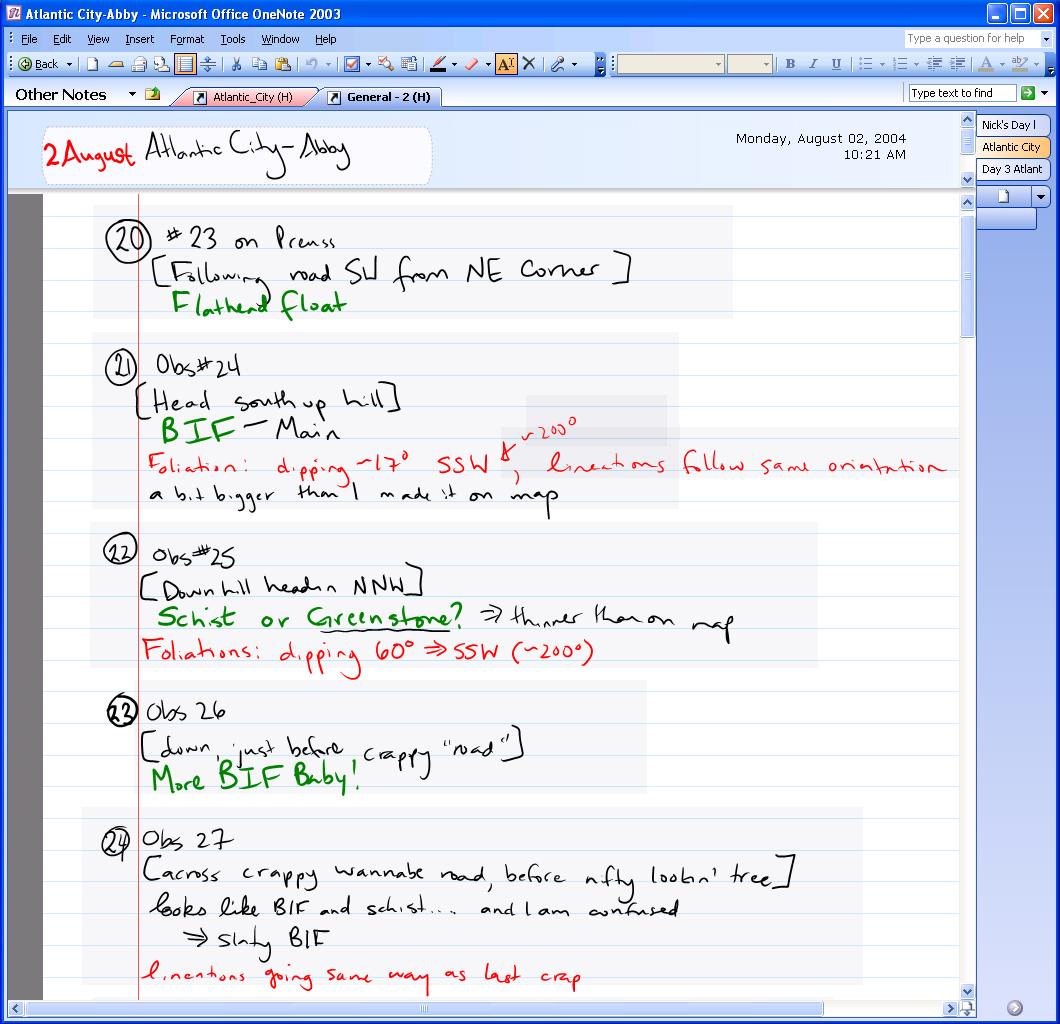 Atlantic City-Abby - Microsoft Office OneNote 2003
File Edit View Insert Format Tools Window Help
Type a question for help
Back
B I U
Other Notes
Atlantic_City (H)
General - 2 (H)
Type text to find
2 August Atlantic City-Abby
Monday, August 02, 2004
10:21 AM
Nick's Day I
Atlantic City
Day 3 Atlant
20 #23 on Preuss
[Following road SW from NE Corner]
Flathead float
21 Obs#24
[Head south up hill]
BIF - Main
~200°
Foliation: dipping ~17° SSW, lineations follow same orientation
a bit bigger than I made it on map
22 Obs#25
[Down hill headin NNW]
Schist or Greenstone? ⇒ thinner than on map
Foliations: dipping 60° ⇒ SSW (~200°)
23 Obs 26
[down, just before crappy "road"]
More BIF Baby!
24 Obs 27
[across crappy wannabe road, before nifty lookin' tree]
looks like BIF and schist.... and I am confused
⇒ slaty BIF
lineations going same way as last crap